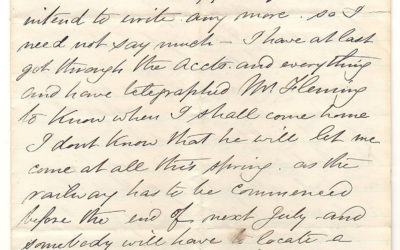 intend to write any more. so I
need not say much - I have at last
got through the Accts. and everything
and have telegraphed Mr Fleming
to Know when I shall come home
I dont Know that he will let me
come at all this spring. as the
railway has to be commenced
before the end of next July - and
somebody will have to locate a